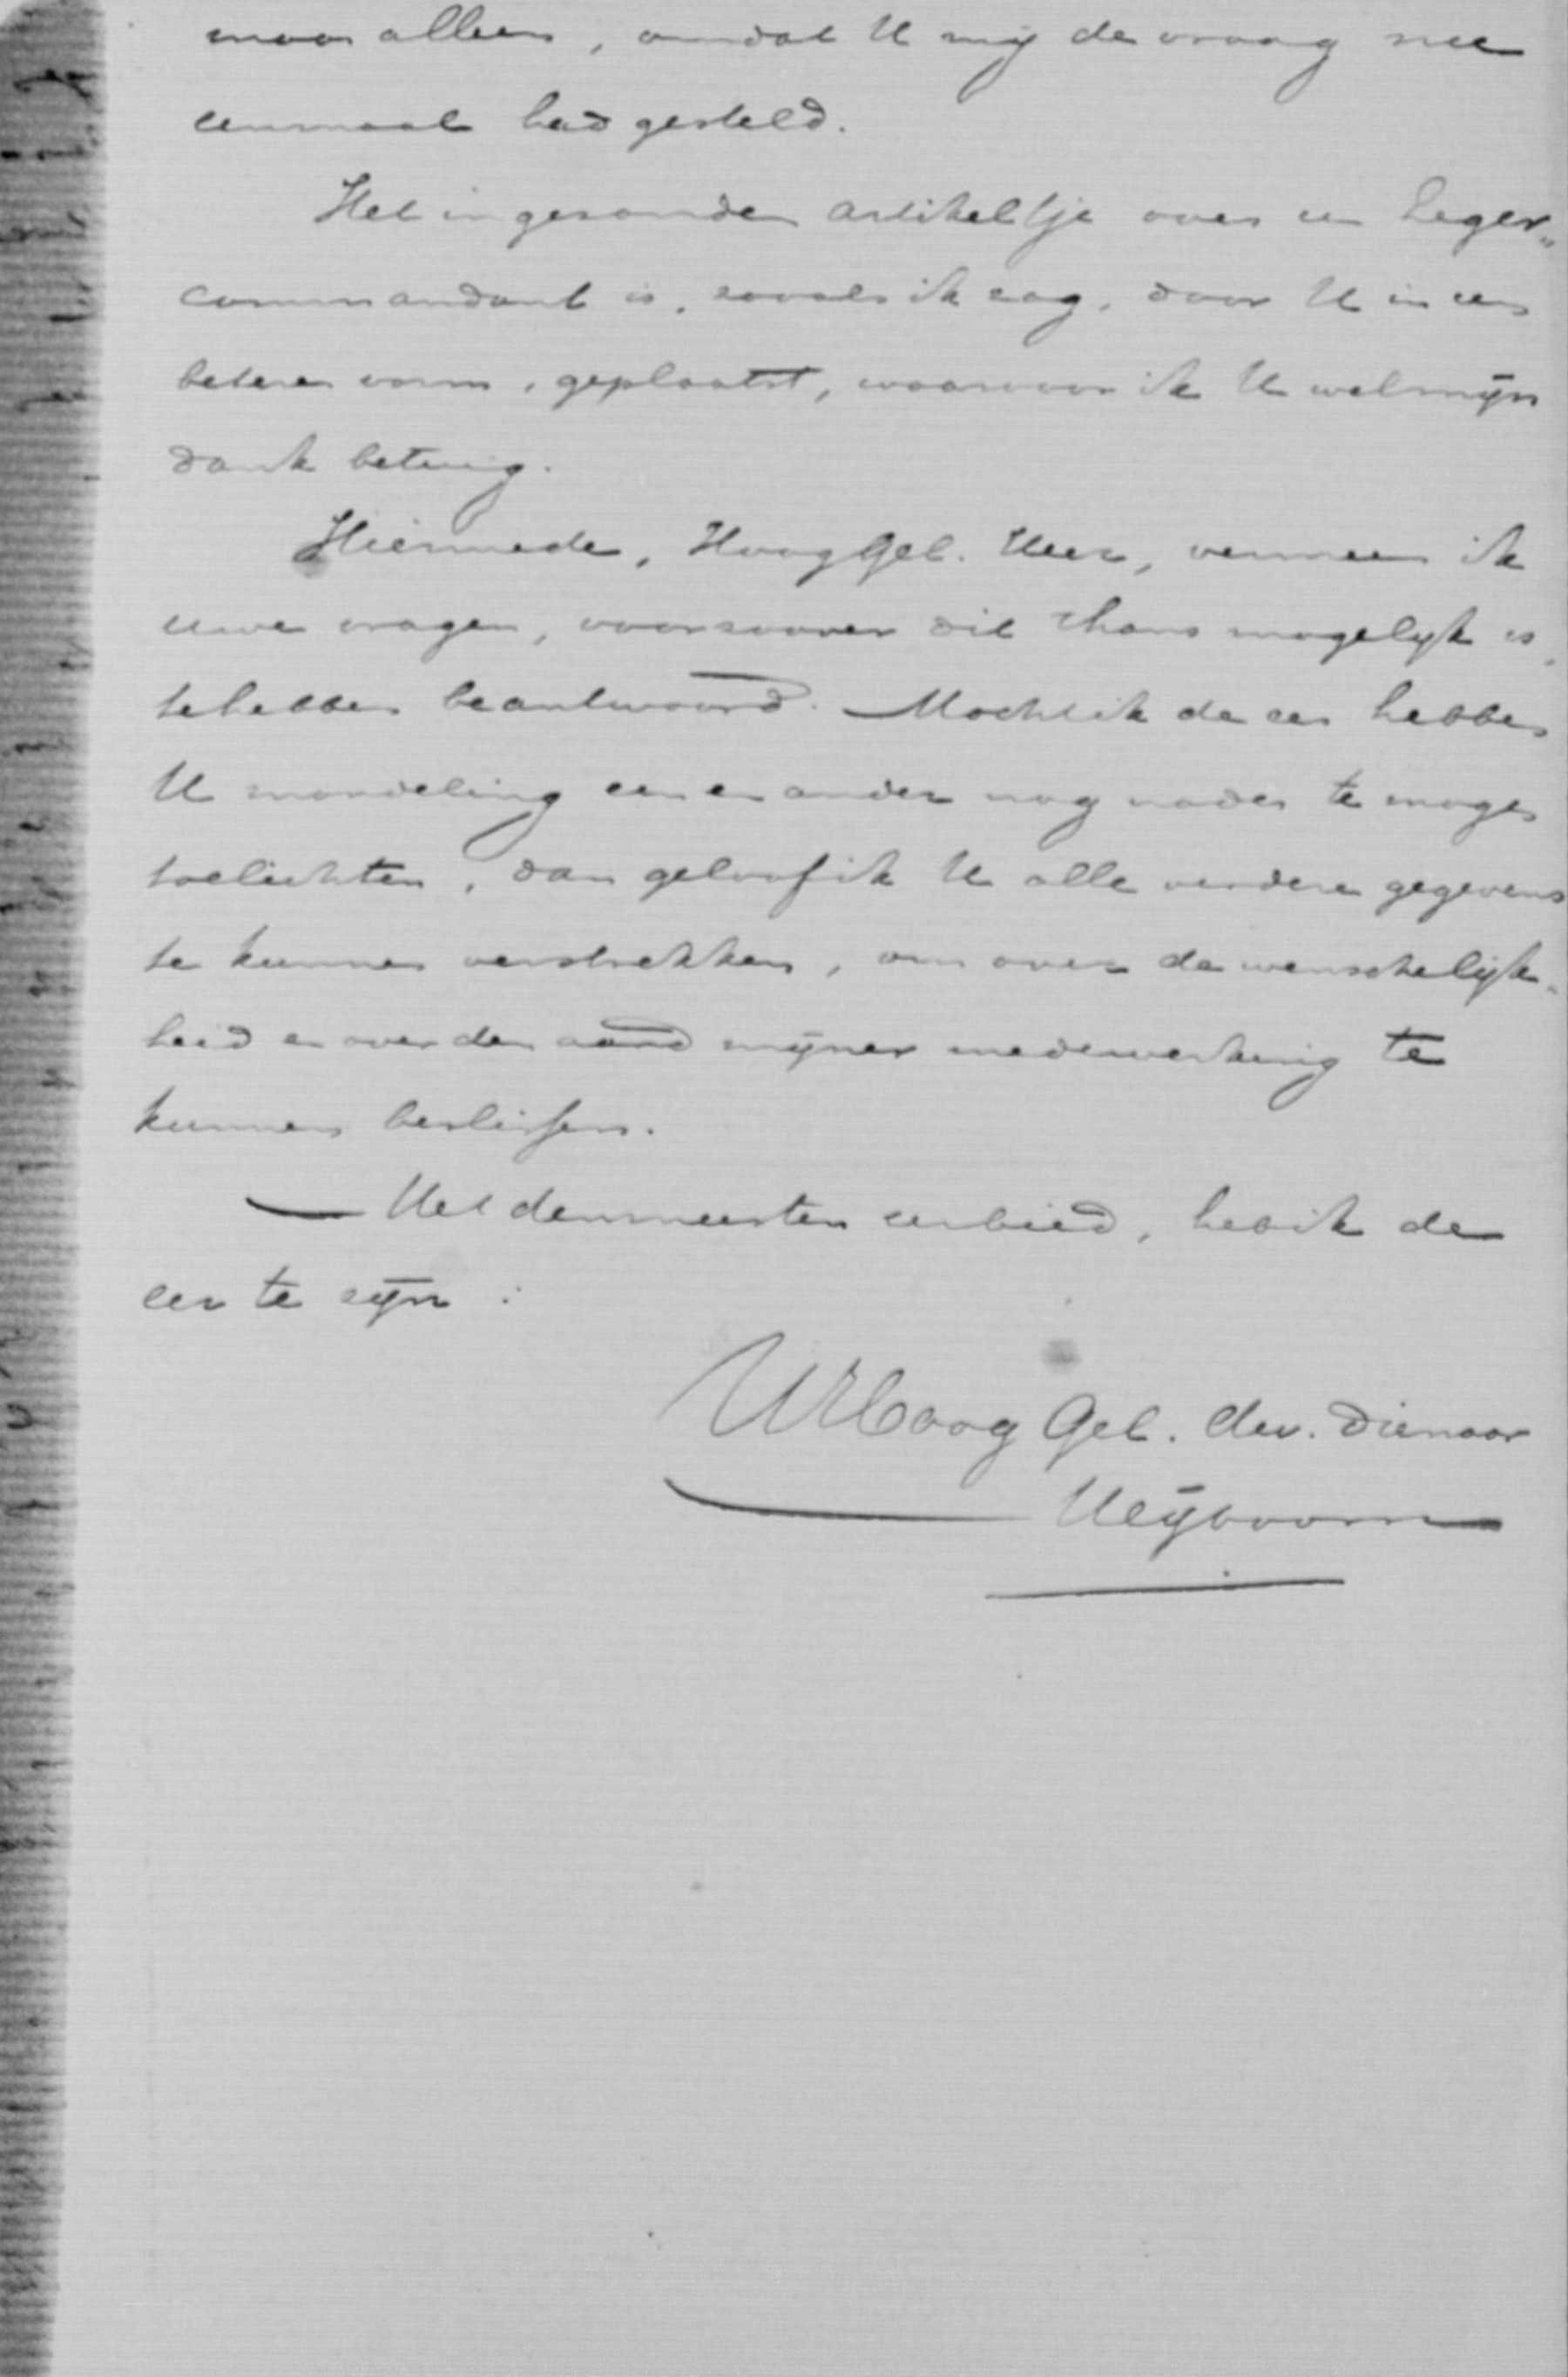 maar alleen, omdat U mij de vraag nu
eenmaal had gesteld.
Het ingezonden artikeltje over een Leger-
commandant is, zooals ik zag, door U in een
betere vorm, geplaatst, waarvoor ik U wel mijn
dank betuig.
Hiermede, HoogGeb. Heer, vermeen ik
uwe vragen, voorzoover dit thans mogelijk is,
te hebben beantwoord. Mocht ik de eer hebben
U mondeling een en ander nog nader te mogen
toelichten, dan geloof ik U alle verdere gegevens
te kunnen verstrekken, om over de wenschelijk-
heid en over den aard mijner medewerking te
kunnen beslissen.
Met den meesten eerbied, heb ik de
eer te zijn:
UHoogGeb. dw. dienaar
Meijboom